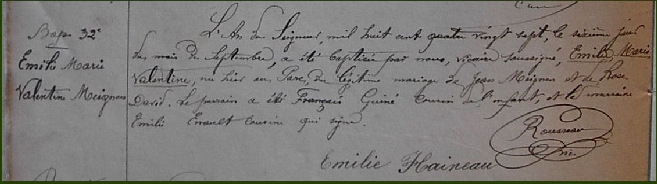 Bap 32e
Emilie Marie
Valentine Meignan
L'An du Seigneur, mil huit cent quatre vingt sept, le sixième jour
du mois de Septembre, a été baptisée par nous, vicaire soussigné, Emilie Marie
Valentine, née hier au, du légitime mariage de Jean Meignan et de Rose
David. Le parrain a été François Guiné Cousin de l'enfant, et la marraine
Emilie Enault cousine qui signe.
Rousseau
Emilie Haineau